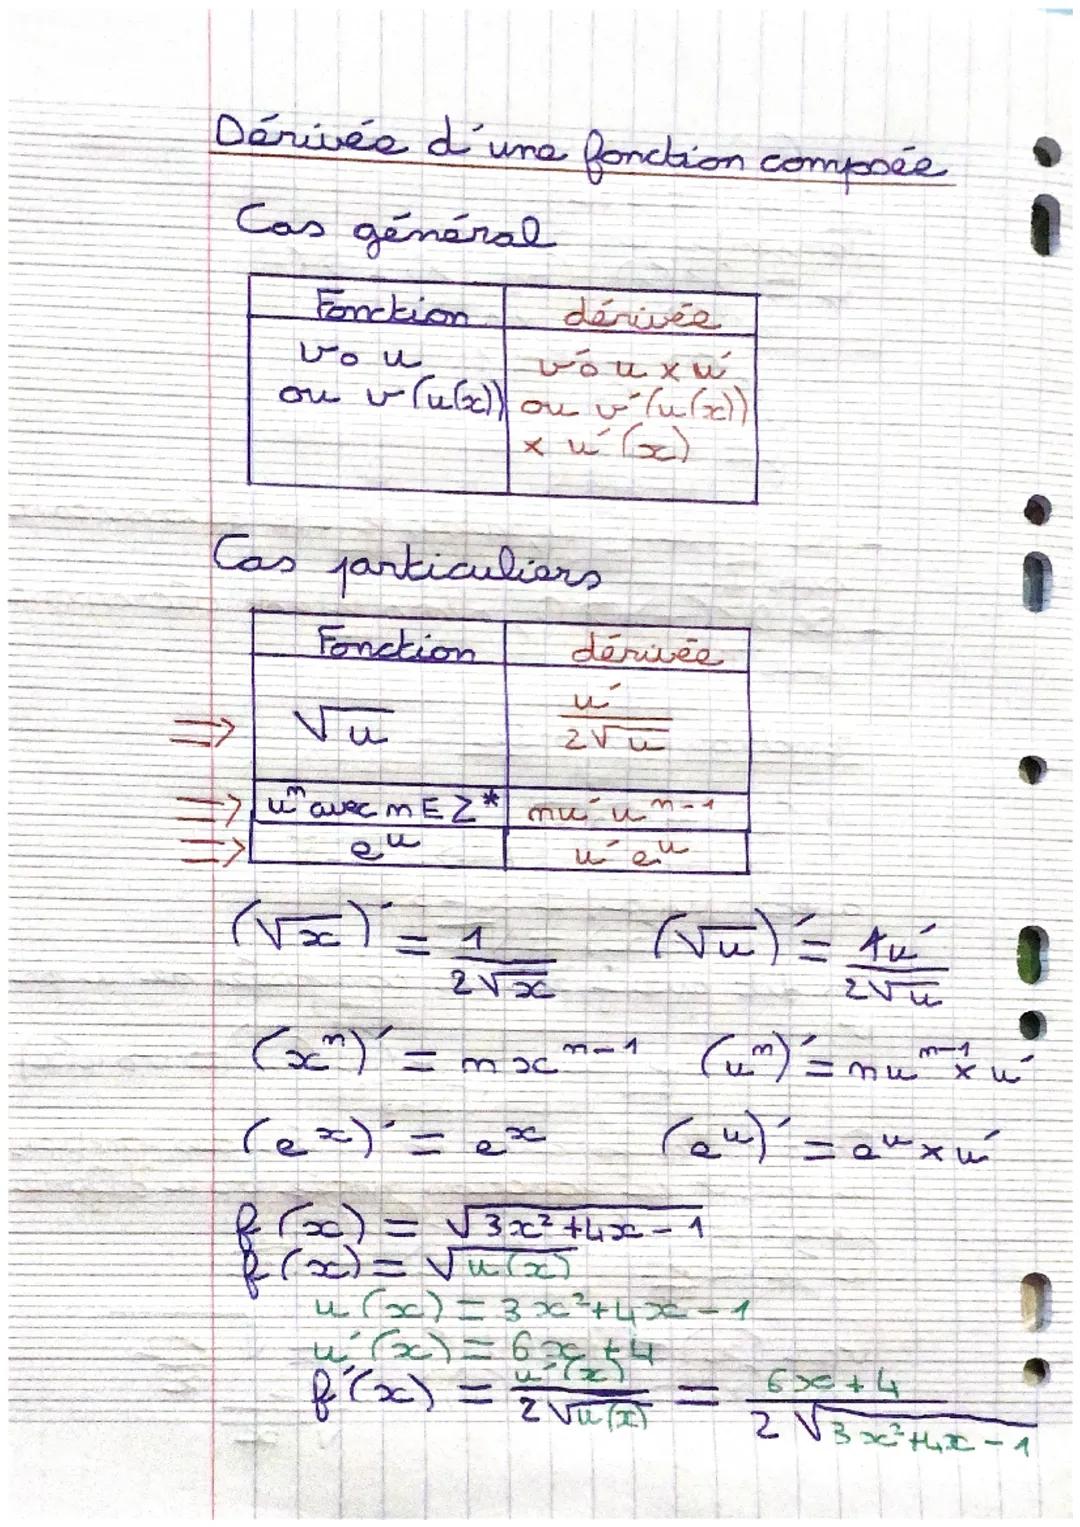 Dérivée d'une fonction composée
Cas général
Fonction dérivée
v o u v'o u x u'
ou v(u(x)) ou v'(u(x))
x u'(x)
Cas particuliers
Fonction dérivée
⇒ √u u'/2√u
⇒ uⁿ avec n E Z* nu'uⁿ⁻¹
⇒ eᵘ u'eᵘ
(√x)' = 1/2√x (√u)' = 1u'/2√u
(xⁿ)' = nxⁿ⁻¹ (uⁿ)' = nuⁿ⁻¹ x u'
(eˣ)' = eˣ (eᵘ)' = eᵘ x u'
f(x) = √(3x²+4x-1)
f(x) = √u(x)
u(x) = 3x²+4x-1
u'(x) = 6x+4
f'(x) = u'(x)/2√u(x) = 6x+4/2√(3x²+4x-1)